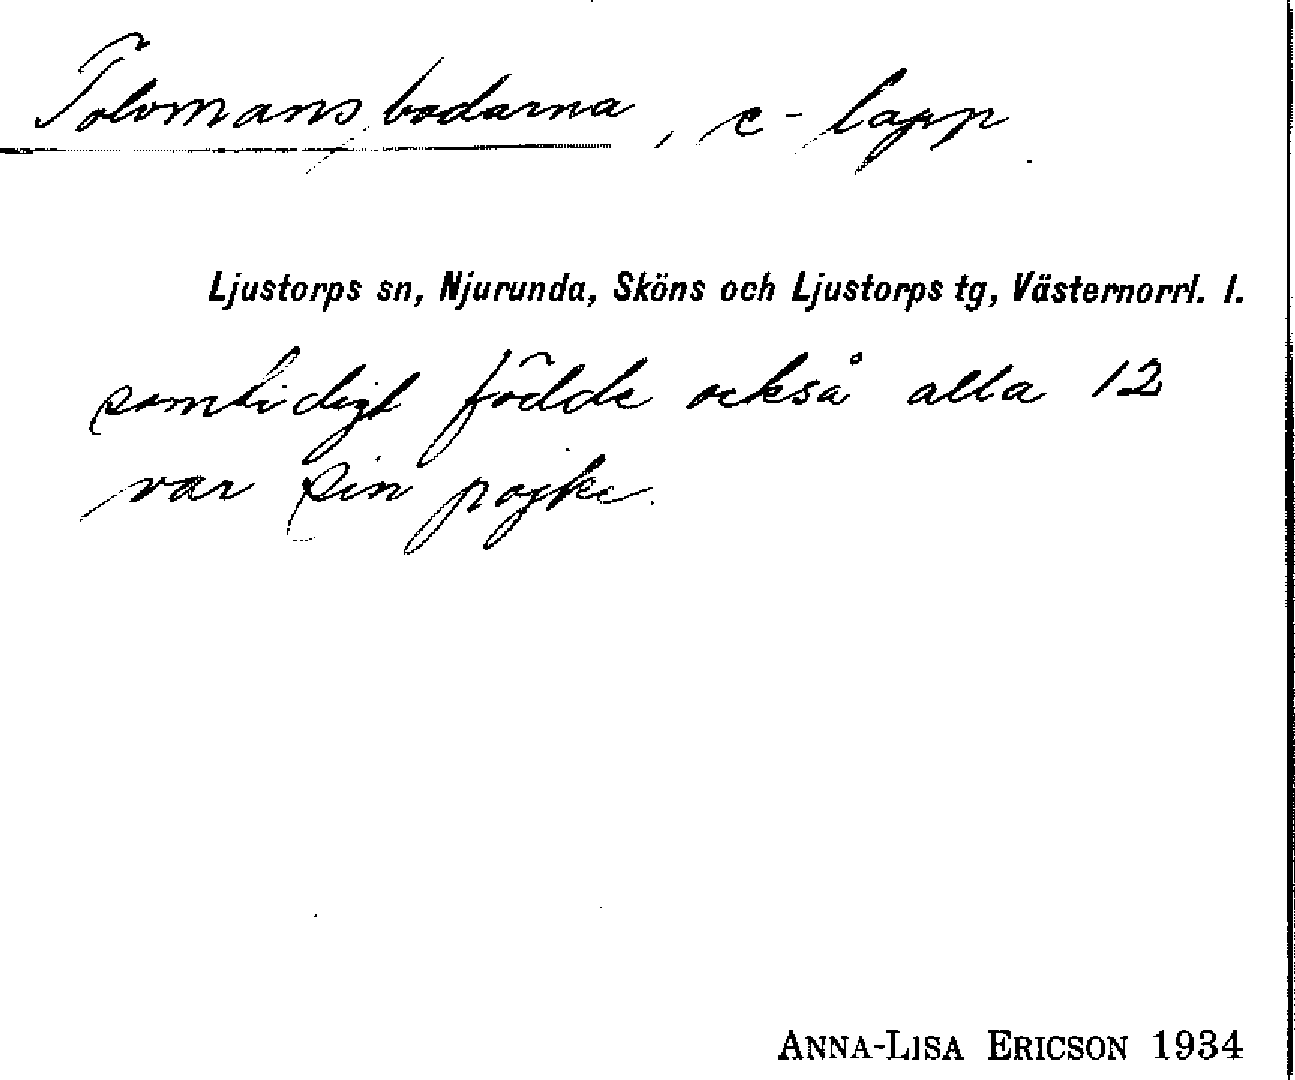 Tolvmansbodarna, c-lapp.
Ljustorps sn, Njurunda, Sköns och Ljustorps tg, Västernorrl. l.
samtidigt födde också alla 12
var sin pojke.
ANNA-LISA ERICSON 1934